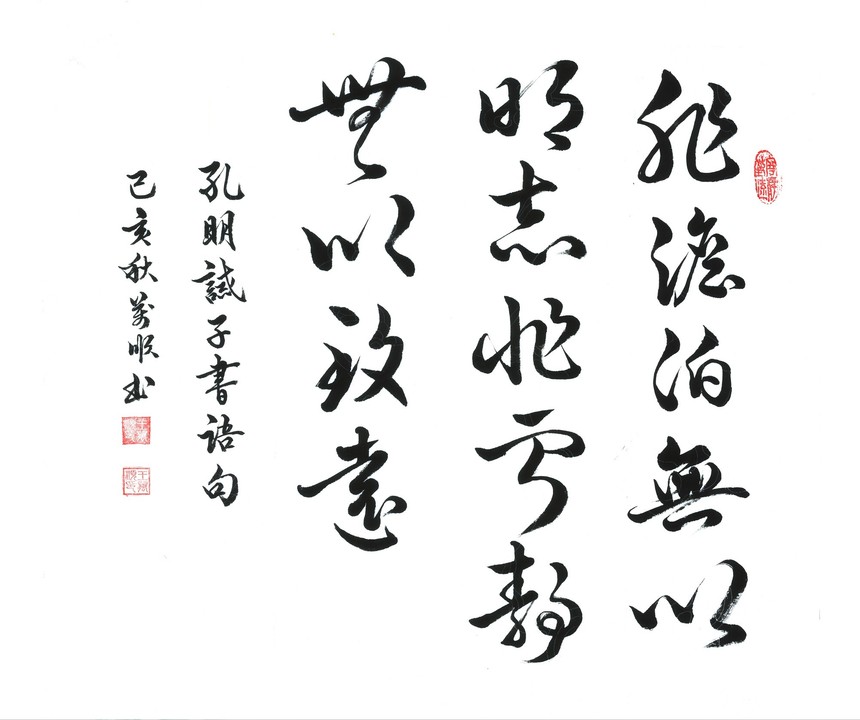 非澹泊無以
明志非寧靜
無以致遠
孔明誡子書語句
己亥秋萬順书